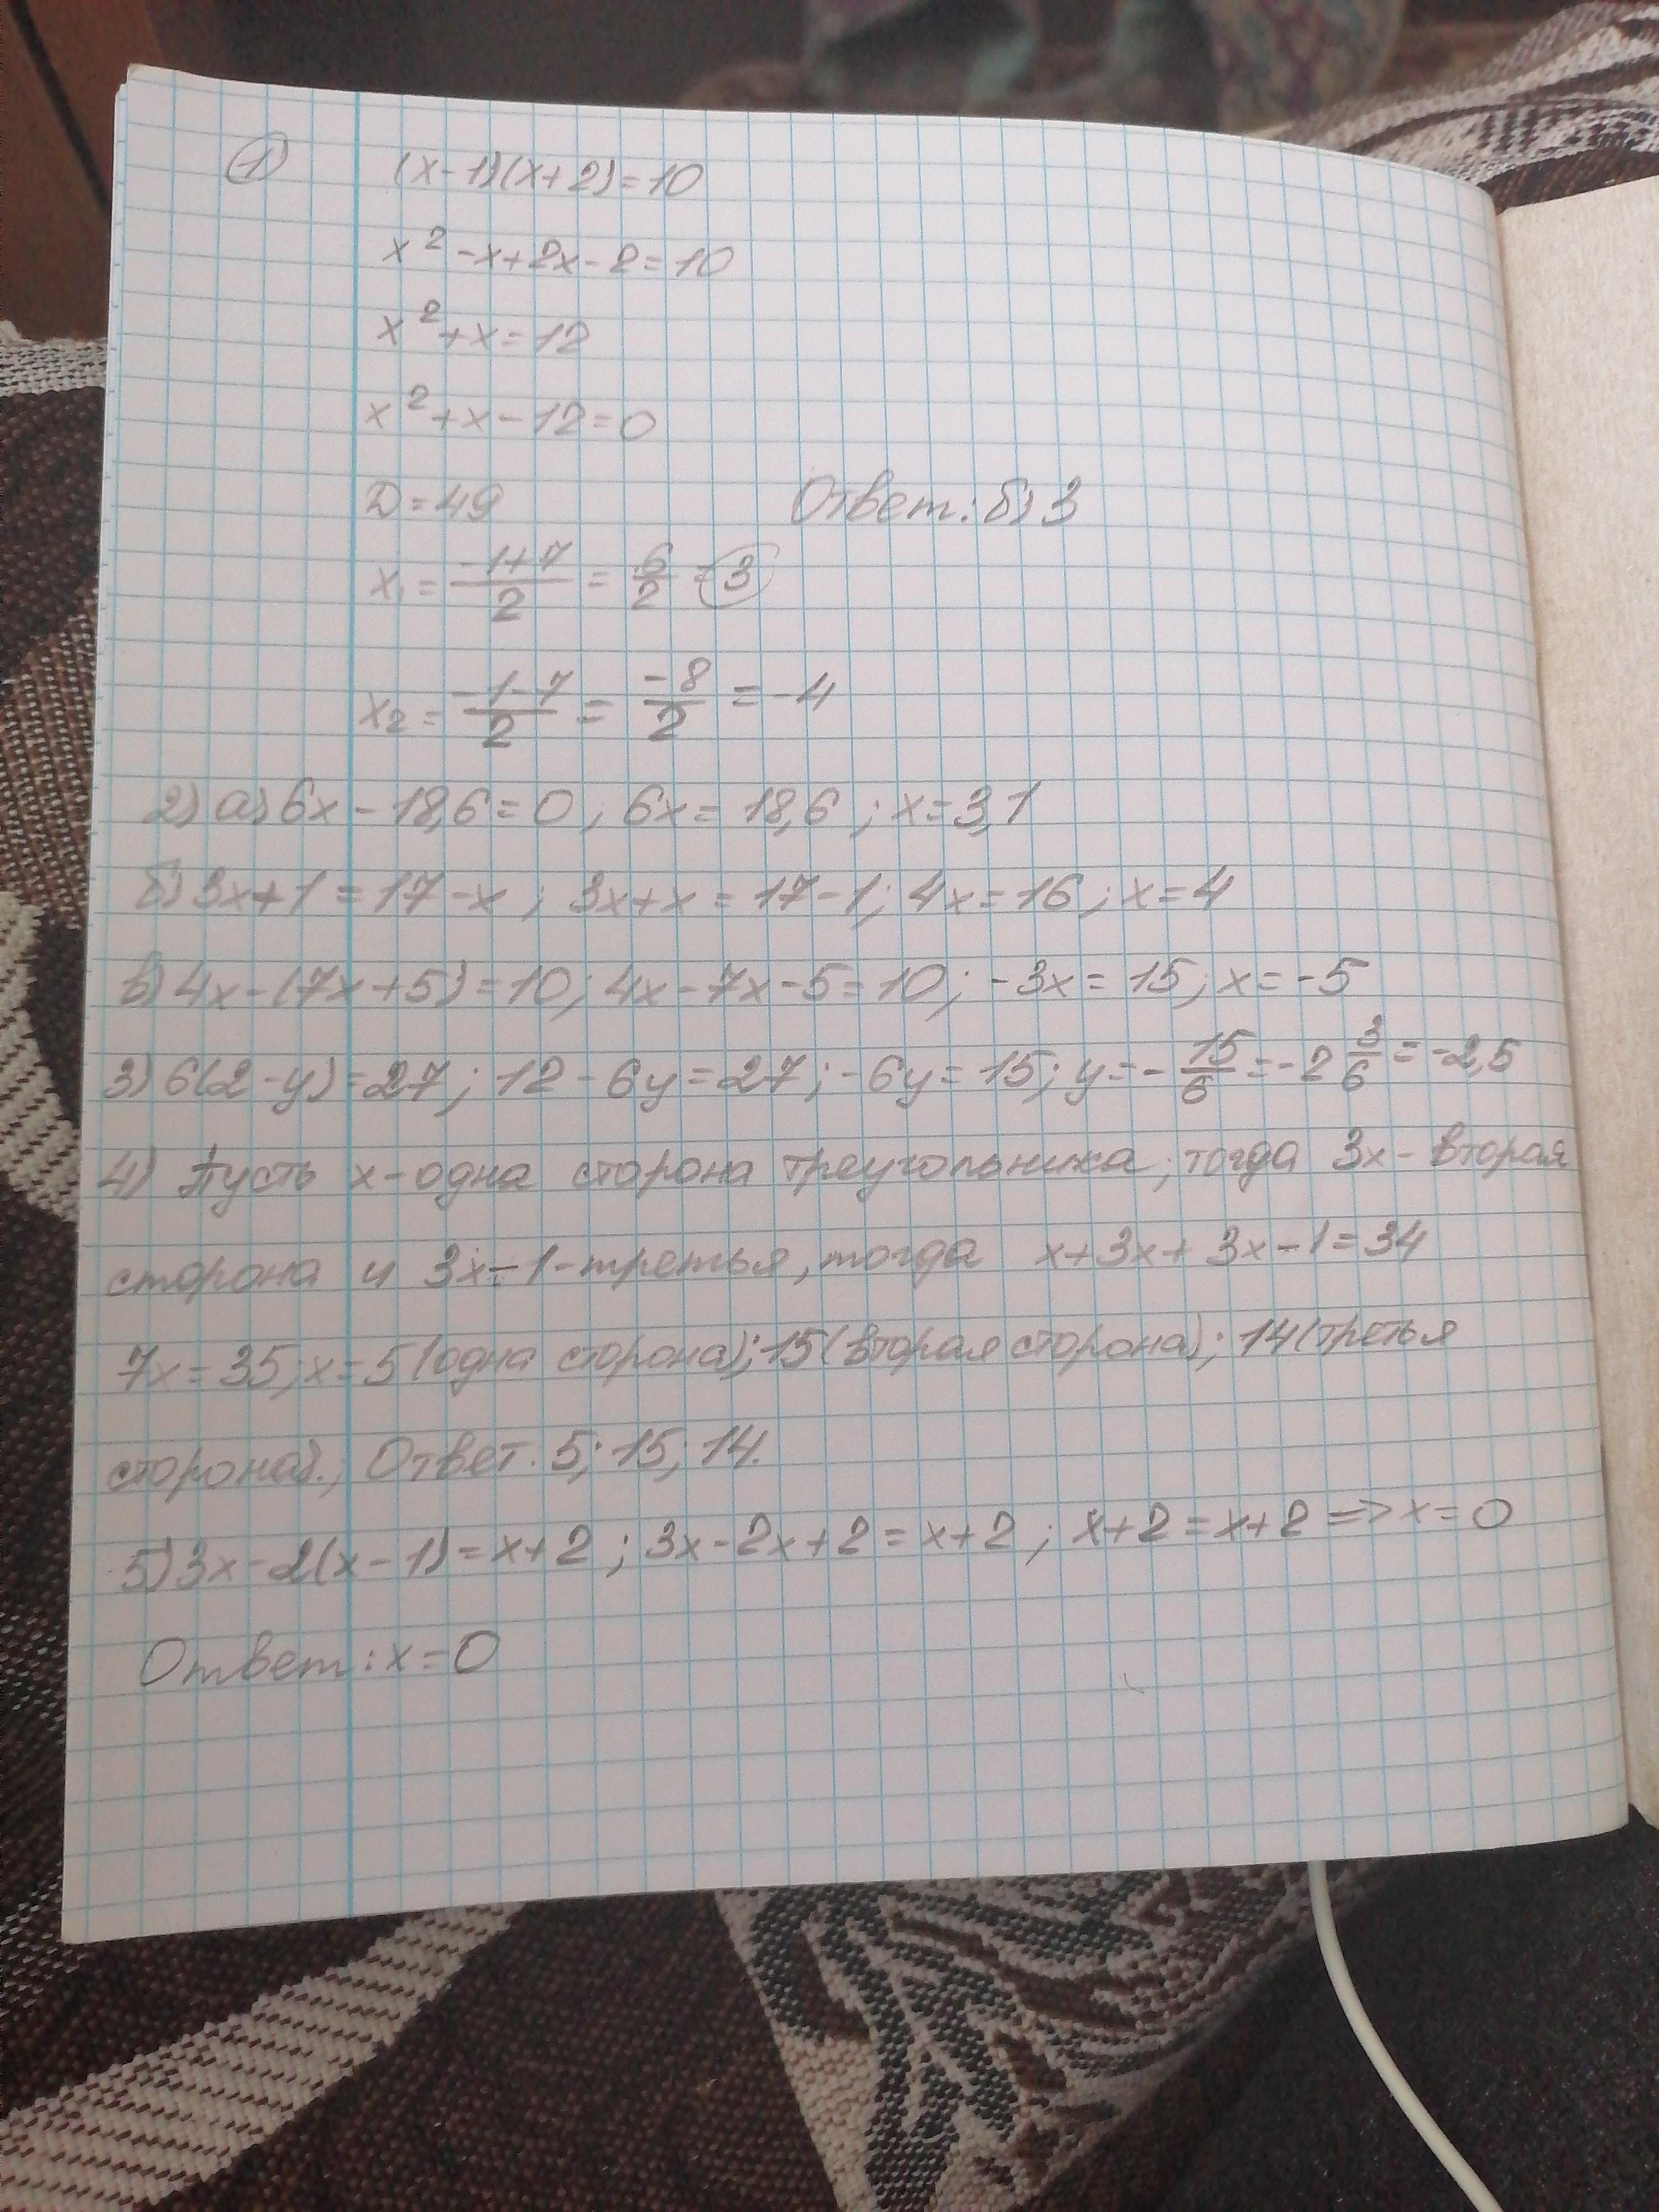 1) (x-1)(x+2)=10
x²-x+2x-2=10
x²+x=12
x²+x-12=0
D=49 Ответ: б) 3
x₁=(-1+7)/2=6/2=3
x₂=(-1-7)/2=-8/2=-4
2) а) 6x-18,6=0; 6x=18,6; x=3,1
б) 3x+1=17-x; 3x+x=17-1; 4x=16; x=4
в) 4x-(7x+5)=10; 4x-7x-5=10; -3x=15; x=-5
3) 6(2-y)=27; 12-6y=27; -6y=15; y=-15/6=-2 3/6=-2,5
4) Пусть x-одна сторона треугольника, тогда 3x-вторая
сторона и 3x-1-третья, тогда x+3x+3x-1=34
7x=35; x=5 (одна сторона); 15 (вторая сторона); 14 (третья
сторона).; Ответ. 5; 15; 14.
5) 3x-2(x-1)=x+2; 3x-2x+2=x+2; x+2=x+2=>x=0
Ответ: x=0